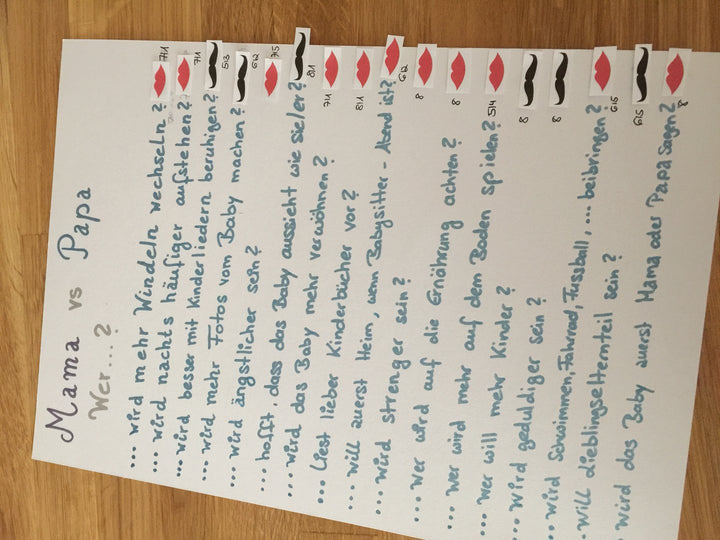 Mama vs Papa
Wer...?
... wird mehr Windeln wechseln? 7|1
... wird nachts häufiger aufstehen? 7|1
... wird besser mit Kinderliedern beruhigen? 5|3
... wird mehr Fotos vom Baby machen? 6|2
... wird ängstlicher sein? 
... hofft, dass das Baby aussieht wie sie/er? 8|1
... wird das Baby mehr verwöhnen? 7|1
... liest lieber Kinderbücher vor? 8|1
... will zuerst Heim, wenn Babysitter-Abend ist? 6|2
... wird strenger sein? 8
... wer wird auf die Ernährung achten? 8
... wer wird mehr auf dem Boden spielen? 5|4
... wer will mehr Kinder? 8
... wird geduldiger sein? 8
... wird Schwimmen, Fahrrad, Fussball, ... beibringen? 6|5
... will Lieblingselternteil sein? 6|5
... wird das Baby zuerst Mama oder Papa sagen? 8